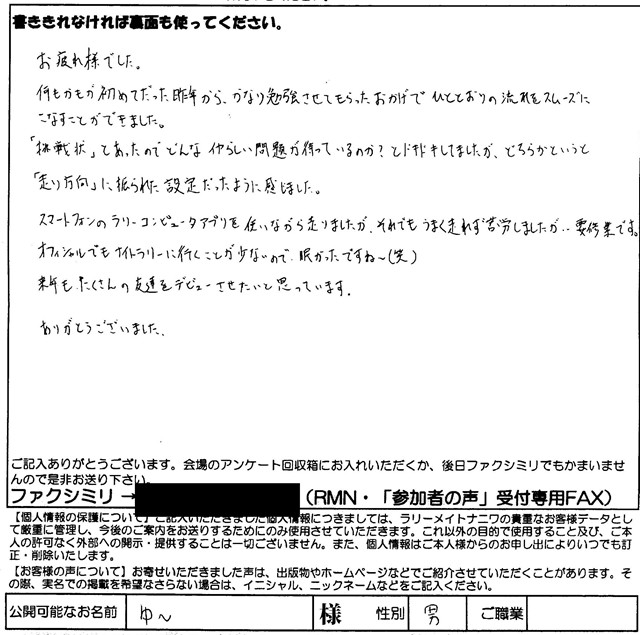 書ききれなければ裏面も使ってください。
お疲れ様でした。
何もかもが初めてだった昨年から、かなり勉強させてもらったおかげでひととおりの流れをスムーズに
こなすことができました。
「挑戦状」とあったのでどんなイヤらしい問題が待っているのか?とドキドキしてましたが、どちらかというと
「走り方向」に振られた設定だったように感じました。
スマートフォンのラリーコンピュータアプリを使いながら走りましたが、それでもうまく走れず苦労しましたが‥要修業です。
オフィシャルでもナイトラリーに行くことが少ないので眠かったですね〜(笑)
来年も、たくさんの友達をデビューさせたいと思っています。
ありがとうございました。
ご記入ありがとうございます。会場のアンケート回収箱にお入れいただくか、後日ファクシミリでもかまいませ
んので是非お送り下さい。
ファクシミリ → (RMN・「参加者の声」受付専用FAX)
【個人情報の保護について】ご記入いただきました個人情報につきましては、ラリーメイトナニワの貴重なお客様データとし
て厳重に管理し、今後のご案内をお送りするためにのみ使用させていただきます。これ以外の目的で使用すること及び、ご本
人の許可なく外部への開示・提供することは一切ございません。また、個人情報はご本人様からのお申し出によりいつでも訂
正・削除いたします。
【お客様の声について】お寄せいただきました声は、出版物やホームページなどでご紹介させていただくことがあります。そ
の際、実名での掲載を希望なさらない場合は、イニシャル、ニックネームなどをご記入ください。
公開可能なお名前 ゆ〜 様 性別 男 ご職業